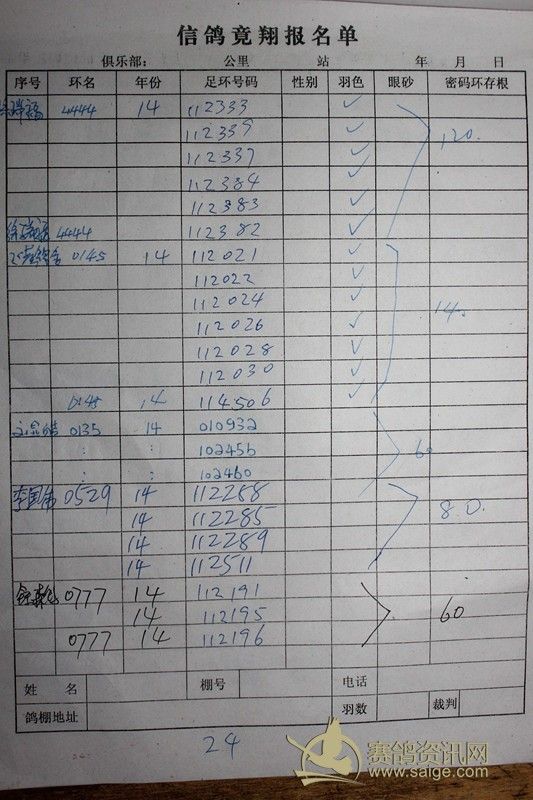 信鸽竟翔报名单
俱乐部: 公里 站 年 月 日
序号 环名 年份 足环号码 性别 羽色 眼砂 密码环存根
4444 14 112333 ✓
112339 ✓
112337 ✓ 120.
112384 ✓
112383 ✓
4444 112382 ✓
0145 14 112021 ✓
112022 ✓
112024 ✓
112026 ✓ 14.
112028 ✓
112030 ✓
0145 14 114506 ✓
0135 14 010932
: : 102456 60
: : 102460
李国伟 0529 14 112288
14 112285 80.
14 112289
14 112511
0777 14 112191
14 112195 60
0777 14 112196
姓 名 棚号 电话
鸽棚地址 羽数 裁判
24
赛鸽资讯网
www.saige.com